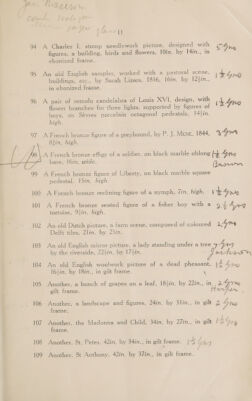 11
94 A Charles I. stump needlework picture, designed with
figures, a building, birds and flowers, 10in. by 14in., in
ebonized frame.
95 An old English sampler, worked with a pastoral scene,
buildings, etc., by Sarah Lizars, 1816, 16in. by 12½in.,
in ebonized frame.
96 A pair of ormolu candelabra of Louis XVI. design, with
flower branches for three lights, supported by figures of
boys, on Sèvres porcelain octagonal pedestals, 14½in.
high.
97 A French bronze figure of a greyhound, by P. J. MENE, 1844,
8½in. high.
98 A French bronze effigy of a soldier, on black marble oblong
base, 16in. wide.
99 A French bronze figure of Liberty, on black marble square
pedestal, 15in. high
100 A French bronze reclining figure of a nymph, 7in. high.
101 A French bronze seated figure of a fisher boy with a
tortoise, 9½in. high.
102 An old Dutch picture, a farm scene, composed of coloured
Delft tiles, 21in. by 25in.
103 An old English mirror picture, a lady standing under a tree
by the riverside, 22½in. by 17½in.
104 An old English woolwork picture of a dead pheasant,
16½in. by 18in., in gilt frame.
105 Another, a bunch of grapes on a leaf, 18½in. by 22in., in
gilt frame.
106 Another, a landscape and figures, 24in. by 31in., in gilt
frame.
107 Another, the Madonna and Child, 34in. by 27in., in gilt
frame.
108 Another, St. Peter, 42in. by 34in., in gilt frame.
109 Another, St Anthony, 42in. by 32in., in gilt frame.